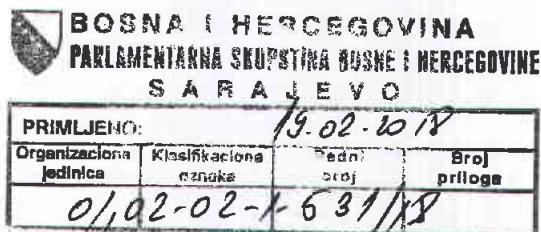 BOSNA I HERCEGOVINA
PARLAMENTARNA SKUPŠTINA BOSNE I HERCEGOVINE
SARAJEVO
PRIMLJENO: 19.02.2018
Organizaciona jedinica Klasifikaciona oznaka Redni broj Broj priloga
01,02-02-1-631/18